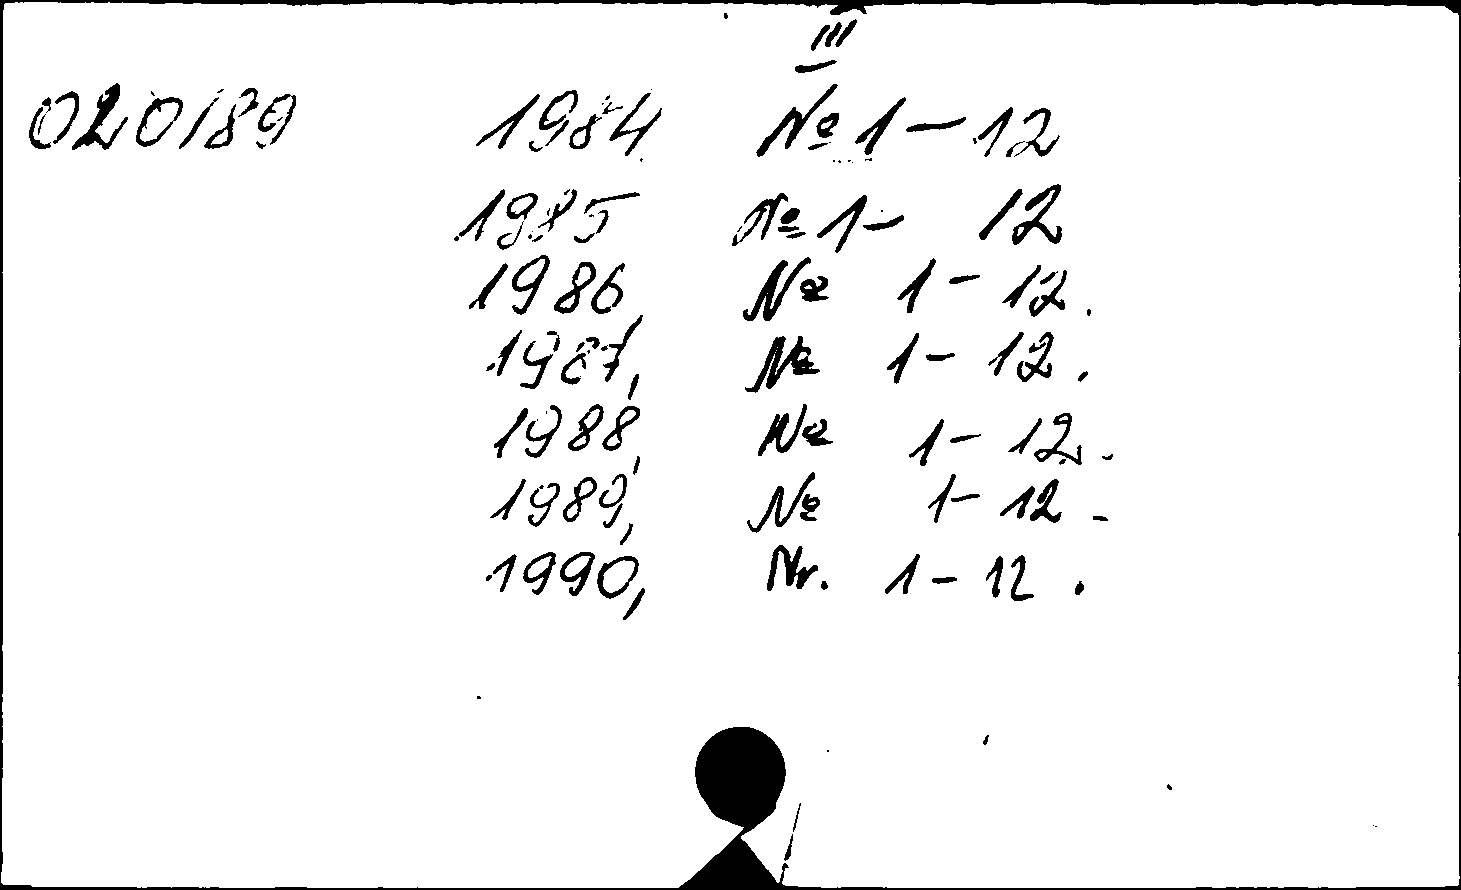 III
020189 1984 № 1 – 12
1985 № 1 – 12
1986, № 1 – 12.
1987, № 1 – 12.
1988, № 1 – 12.
1989, № 1 – 12 -
1990, Nr. 1 – 12.